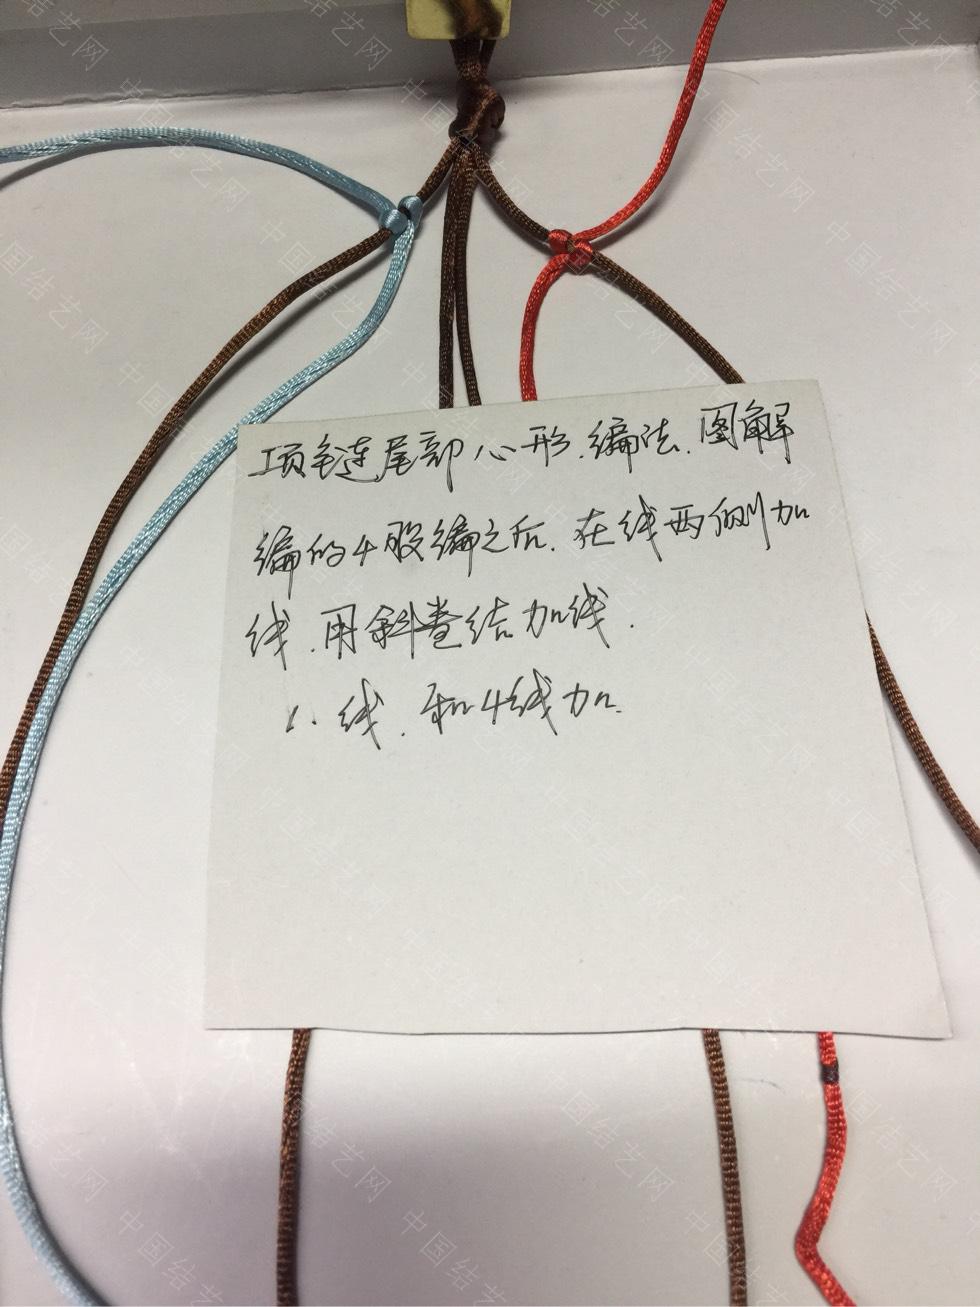 项链尾部心形.编法.图解
编的4股编之后.在线两侧加
线.用斜卷结加线.
1.线.和4线加.
中国结艺网